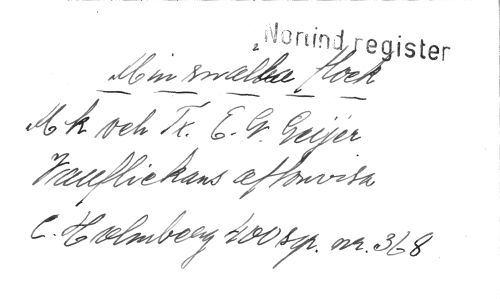 Norlind register
Min smälta flock
Mk och Tx. E. G. Geijer
Vallflickans aftonvisa
C. Holmberg 400 sp. nr. 368